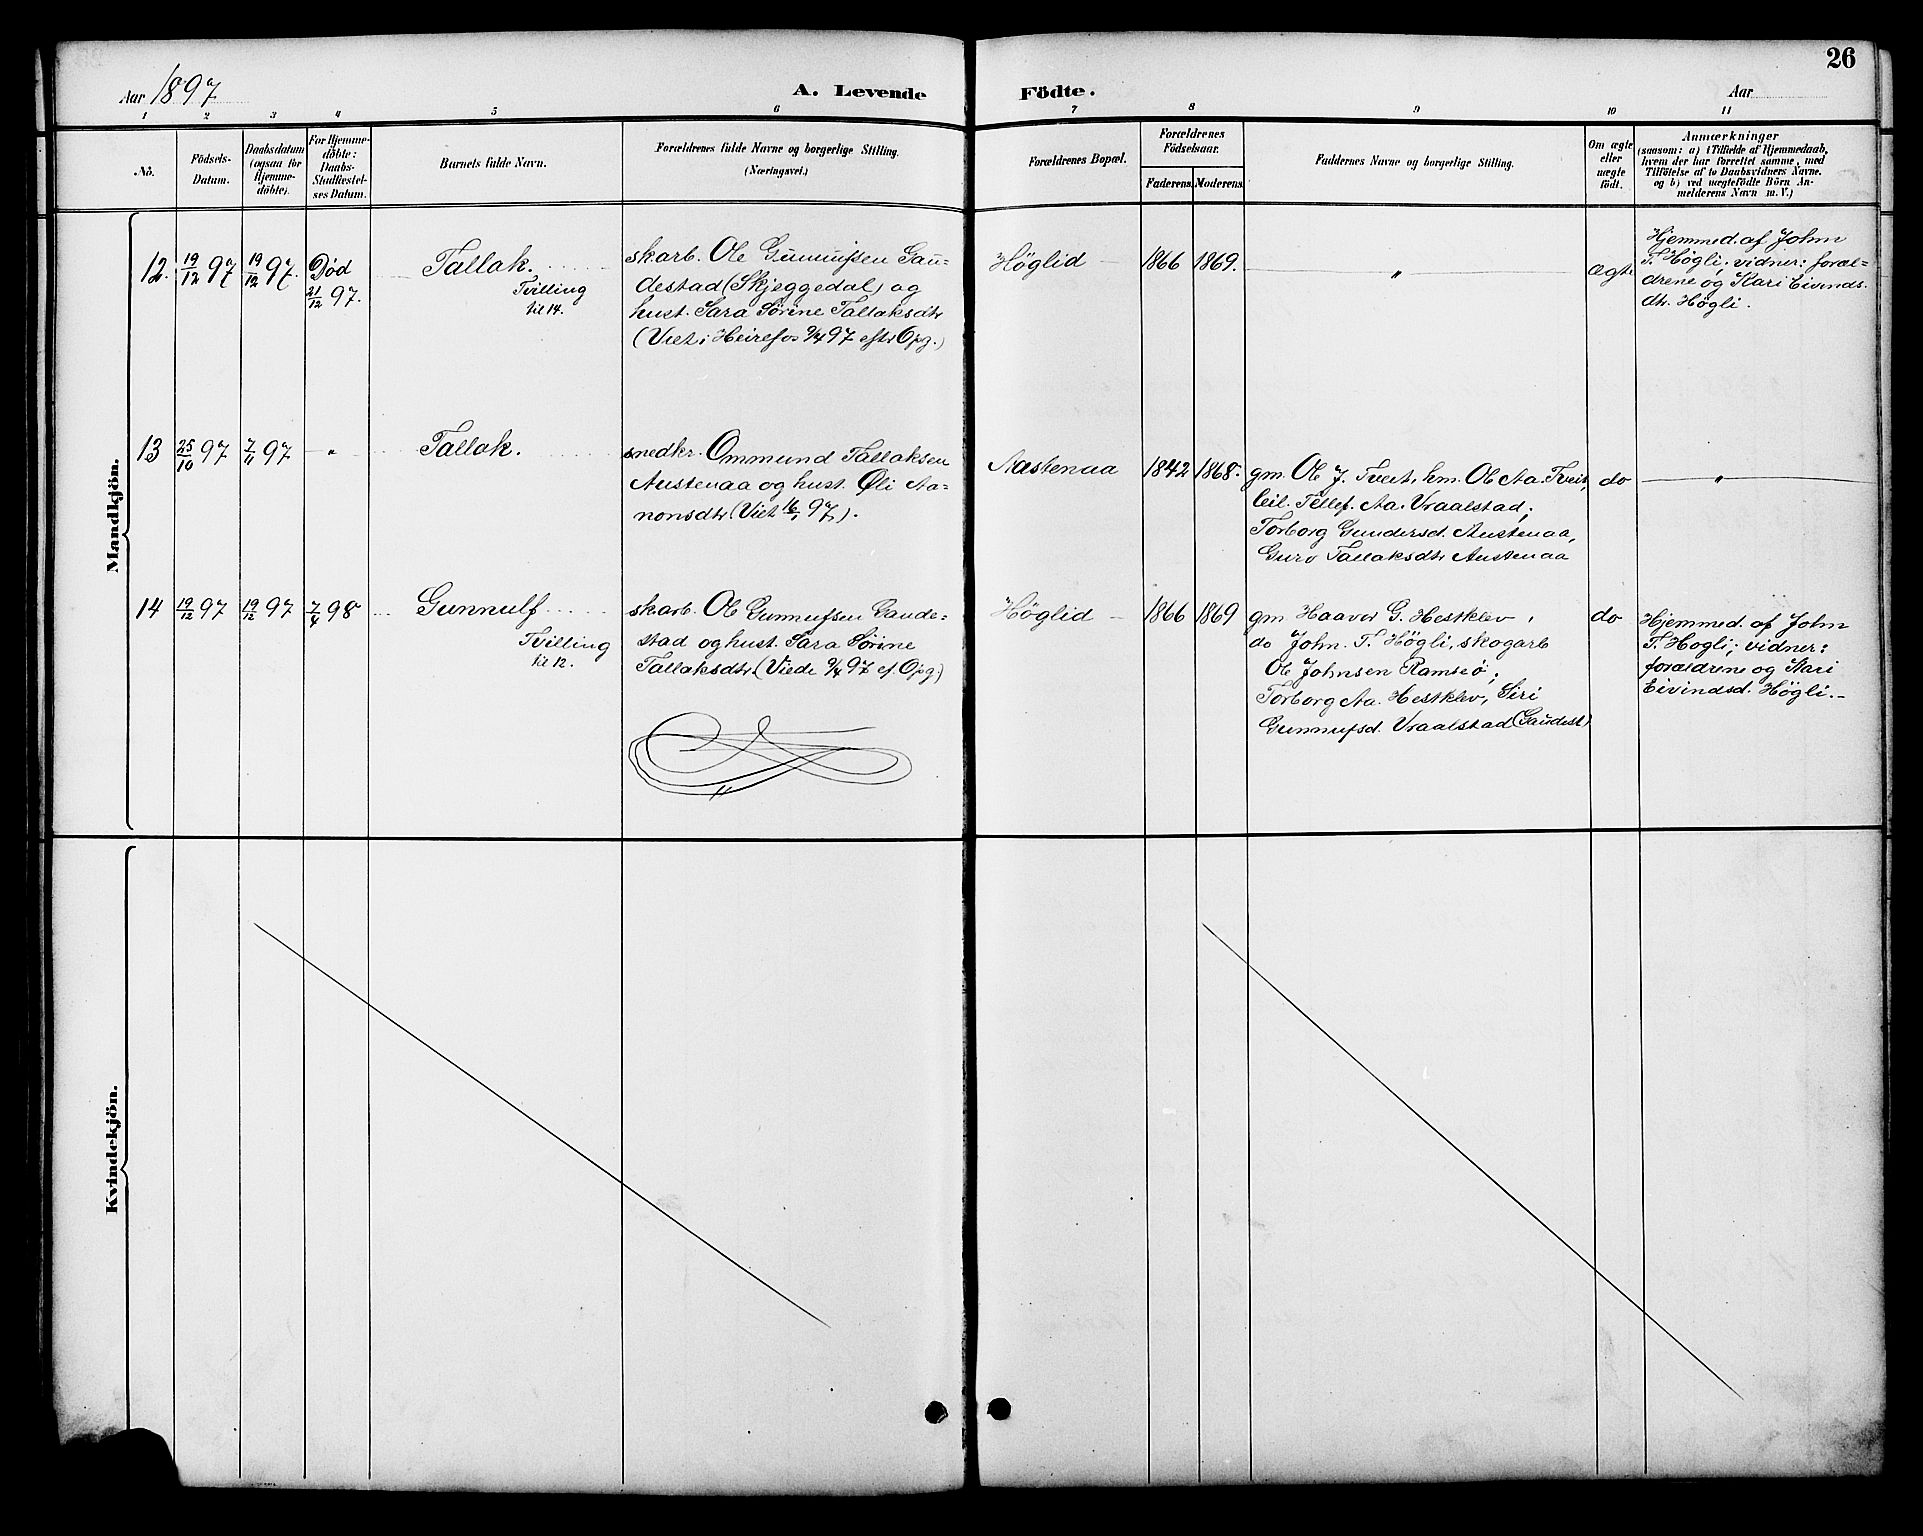 26
Aar 1897
A. Levende
Födte.
Aar
1 2 3 4 5 6 7 8 9 10 11
No.
Födsels-
Datum.
Daabsdatum
(ogsaa for
Hjemme-
döbte).
For Hjemme-
døbte:
Daabs-
Stadfæstel-
ses Datum.
Barnets fulde Navn.
Forældrenes fulde Navne og borgerlige Stilling.
(Næringsvei.)
Forældrenes Bopæl.
Forældrenes
Födselsaar.
Faderens.
Moderens.
Faddernes Navne og borgerlige Stilling.
Om ægte
eller
uægte
födt.
Anmærkninger
(saasom: a) i Tilfælde af Hjemmedaab,
hvem der har forrettet samme, med
Tilföielse af to Daabsvidners Navne.
og b) ved uægtefödte Börn An-
melderens Navn m. V.)
Mandkjön.
12. 19/12 97 19/12 97. Død
21/12 97.
Tallak.
Tvilling
til 14.
skarb. Ole Gunnufsen Gau-
destad (Skjeggedal) og
hust. Sara Sørine Tallaksdtr
(Viet i Heirefos 9/4 97 eftr Opg.)
Höglid 1866 1869. " ægte
Hjemmed. af John
T. Högli; vidner: foræl-
drene og Kari Eivinds-
dtr. Högli.
13 25/10 97 7/11 97 "
Tallak.
snedkr. Ommund Tallaksen
Austenaa og hust. Øli Aa-
nonsdtr (Viet 16/1 97).
Austenaa 1842 1868.
gm. Ole J. Tveit, km. Ole Aa. Tveit,
Tellef. Aa. Vraalstad;
Torborg Gundersd. Austenaa,
Guro Tallaksdtr Austenaa
do "
14 19/12 97 19/12 97 7/4 98
Gunnulf
Tvilling
til 12.
skarb. Ole Gunnufsen Gaude-
stad og hust. Sara Sørine
Tallaksdtr. (Viede 9/4 97 ef. Opg)
Höglid 1866 1869
gm. Haaver G. Hestklev,
do John. T. Högli, skogarb
Ole Johnsen Ramseö;
Torborg Aa. Hestklev, Siri
Gunnufsd. Vraalstad (Gaudest)
do
Hjemmed. af John
T. Hogli; vidner:
forældrene og Kari
Eivindsd. Högli.-
Kvindekjön.